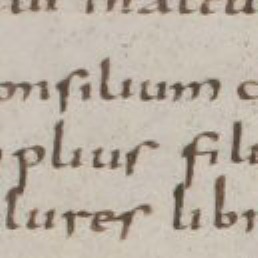 onsilium c
plius fil
lures libr